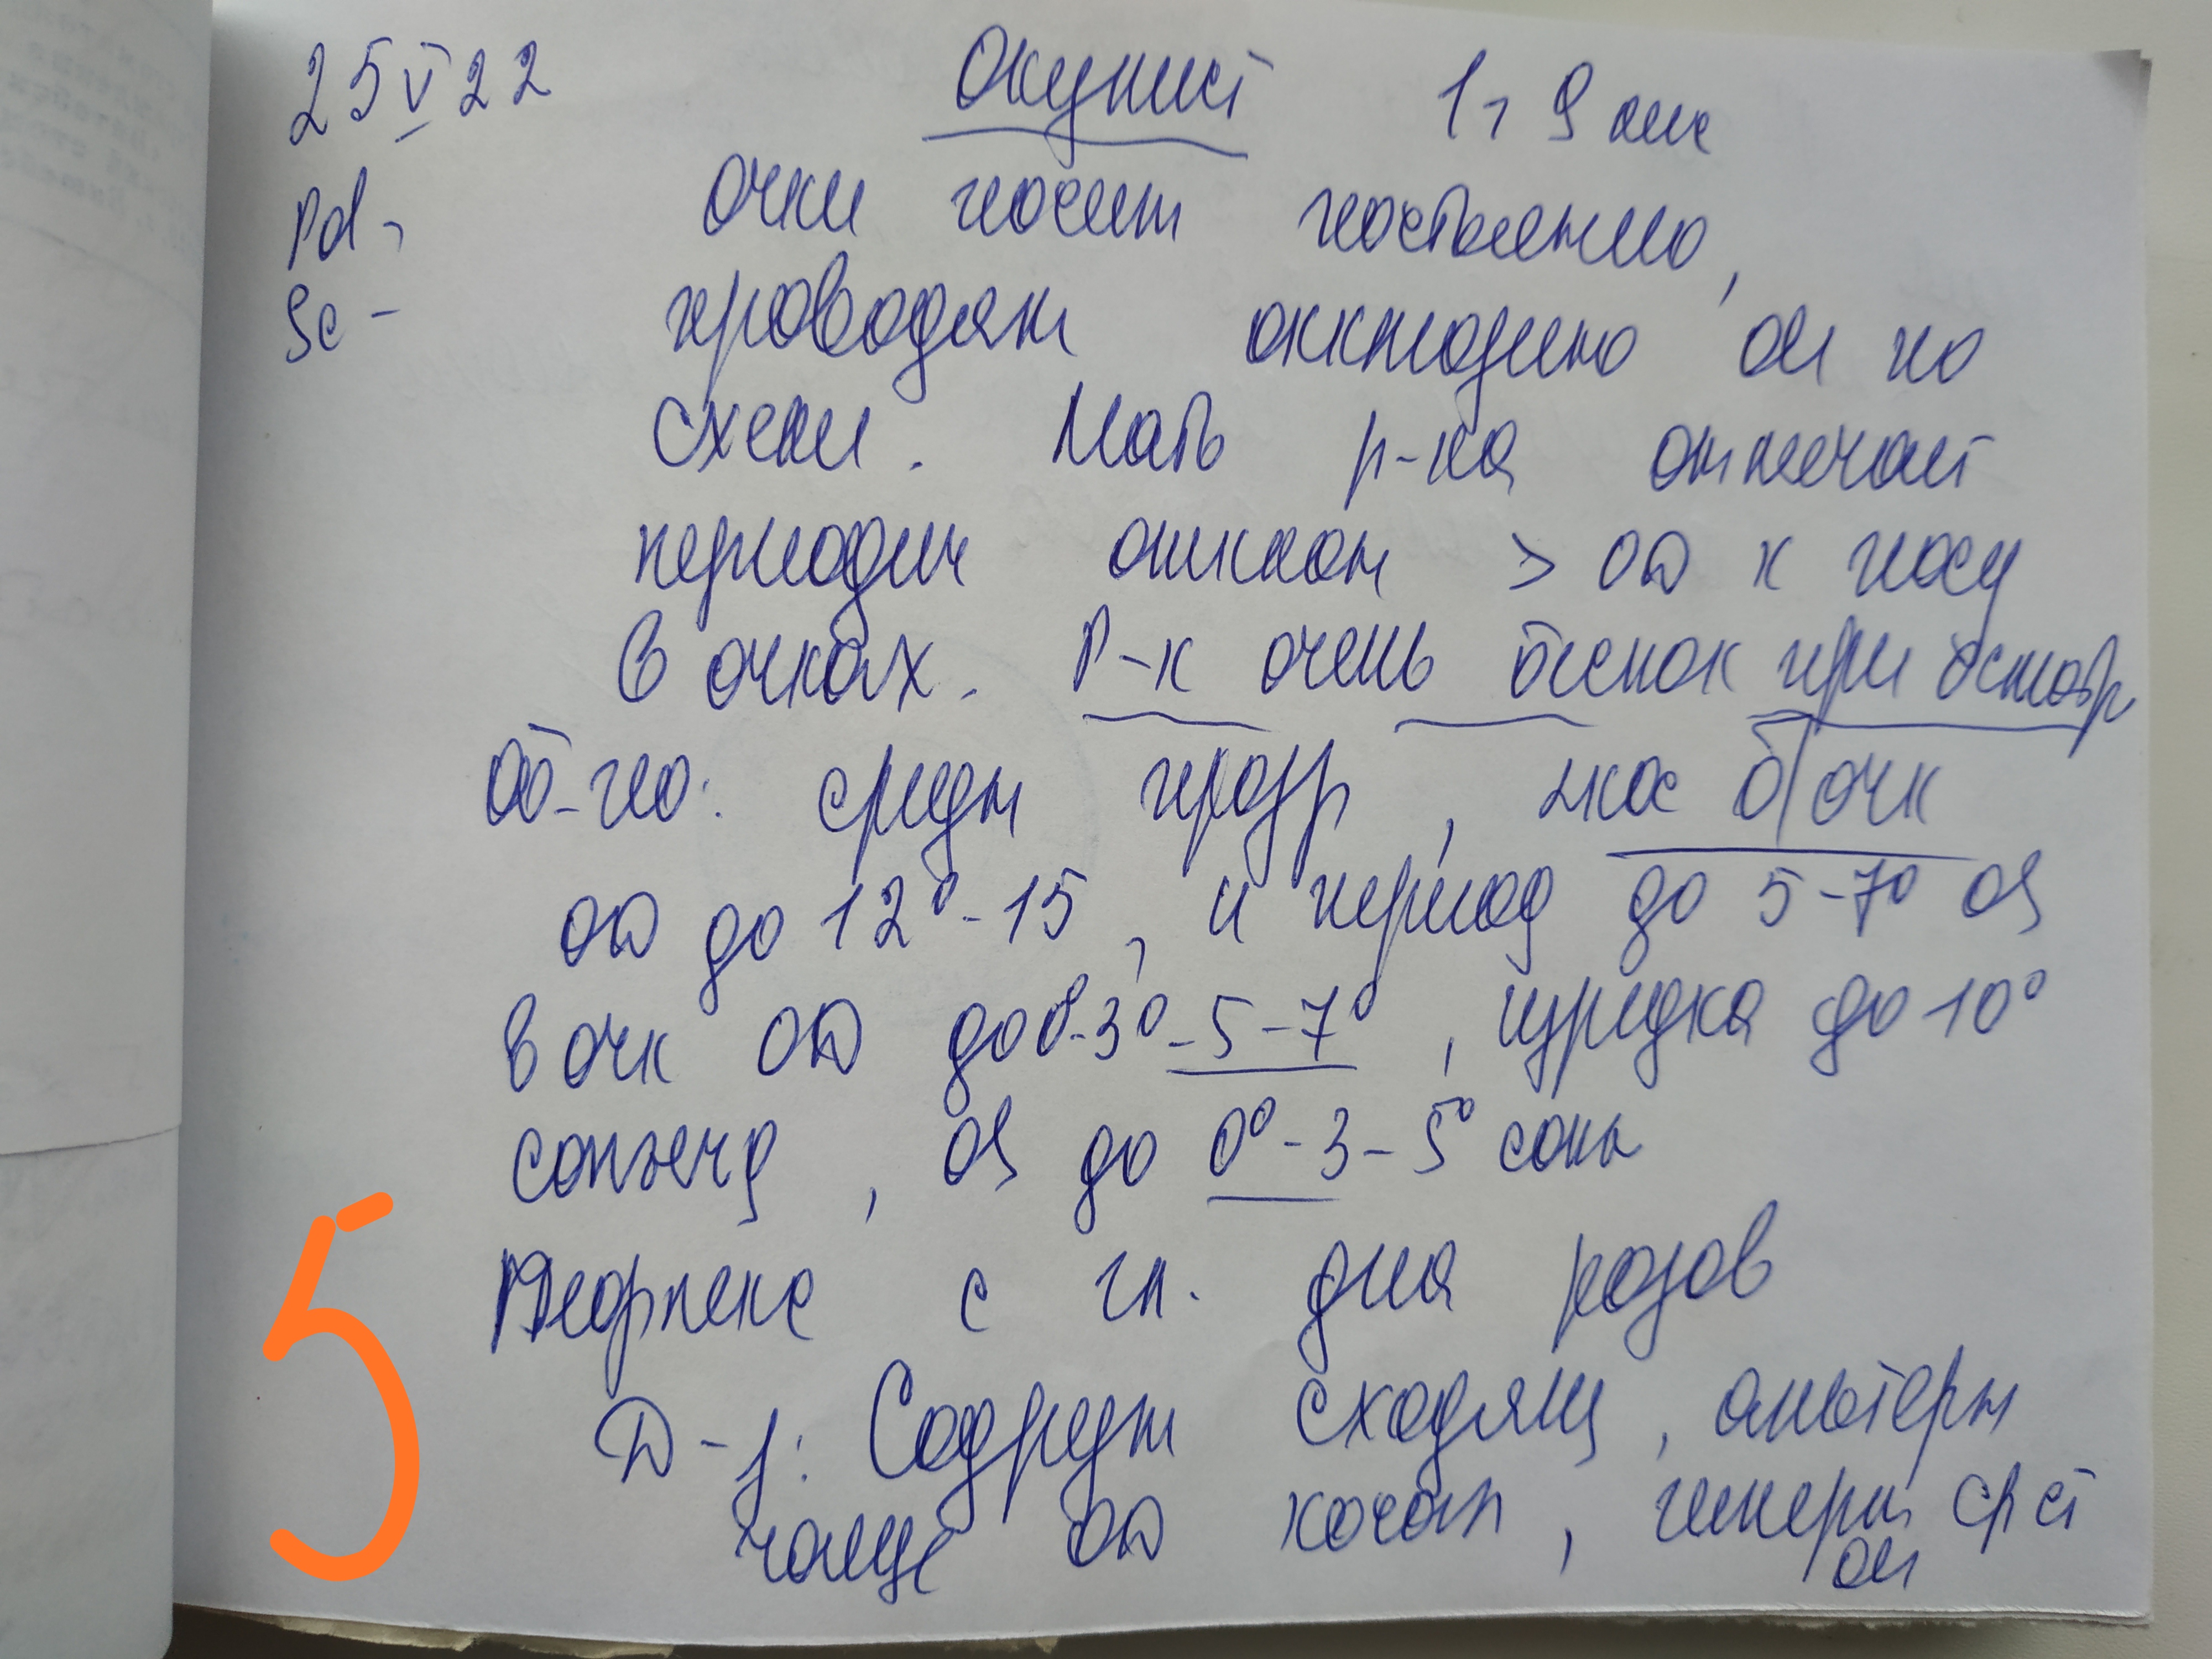 25 V 22 окулист 1г 9 мес
Pd - очки носит постоянно,
Sc - проводят окклюзию ои по
схеме. Мать р-ка отмечает
периодич отклон > OD к носу
в очках. Р-к очень беспок при осмотр
Об-но: среды прозр, <кос б/очк
OD до 12°-15, и период до 5-7° OS
в очк OD до 0-3°-5-7°, изредка до 10°
содруж, OS до 0°-3-5° конв
Рефлекс с гл. дна розов
D-з: Содруж сходящ, альтерн
чаще OD косогл, гиперм ср ст
ои
5